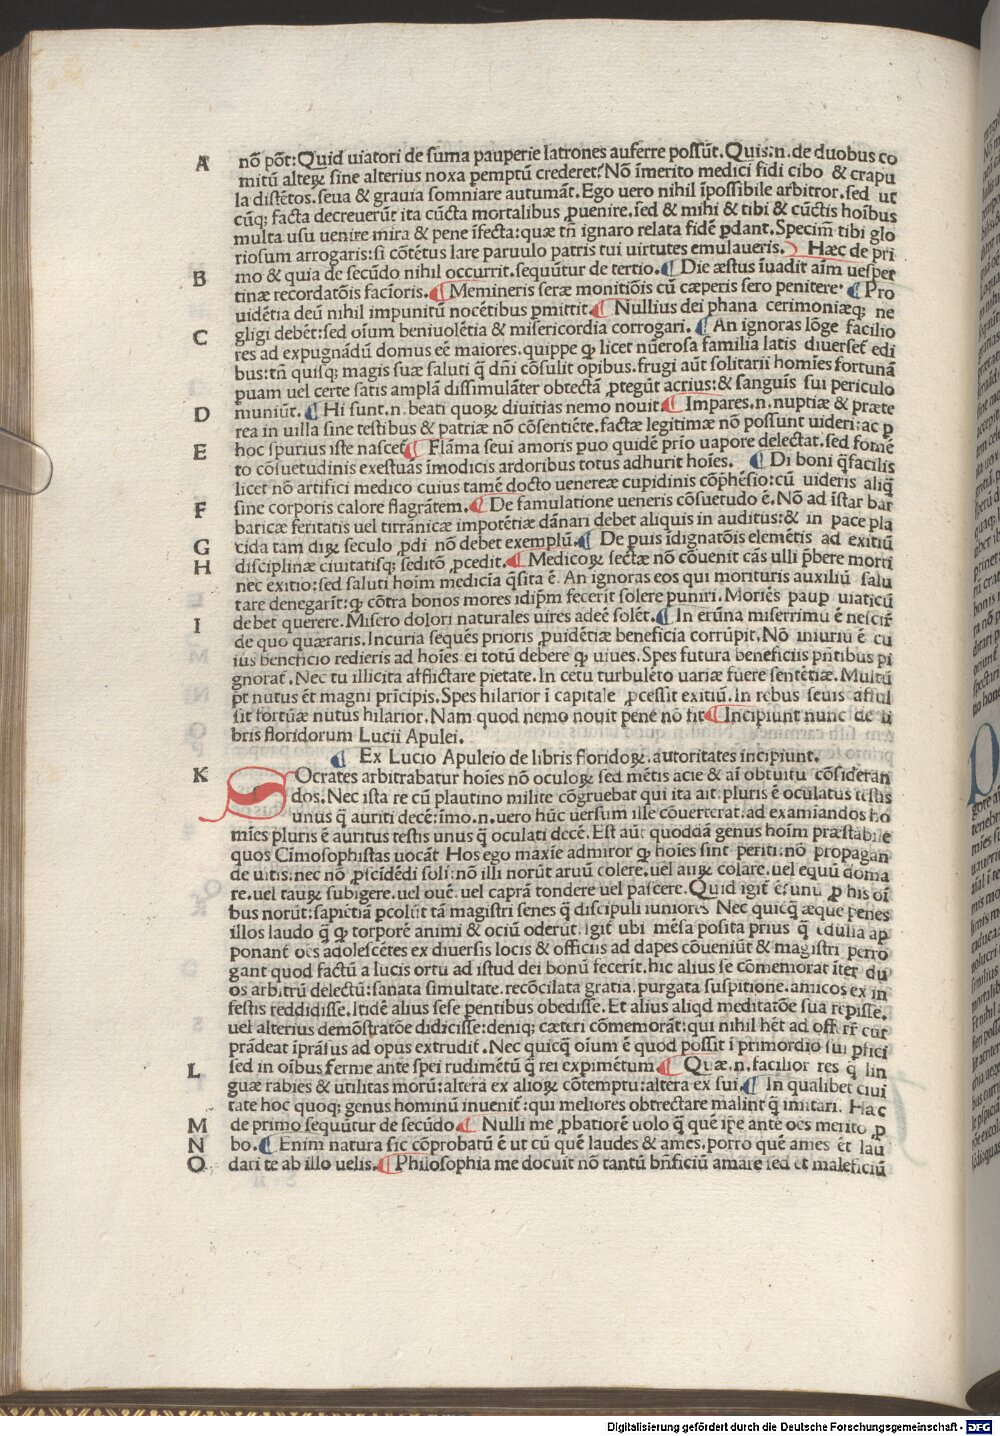 A nō pōt: Quid uiatori de suma pauperie latrones auferre possūt. Quis .n. de duobus co
mitū alteꝝ sine alterius noxa pemptū crederet? Nō īmerito medici fidi cibo & crapu
la distētos. seua & grauia somniare autumāt. Ego uero nihil īpossibile arbitror. sed ut
cūqꝫ facta decreuerūt ita cūcta mortalibus ꝓuenire. sed & mihi & tibi & cūctis hoībus
multa usu uenire mira & pene īfecta: quæ tñ ignaro relata fidē ꝑdant. Specim̄ tibi glo
riosum arrogaris: si cōtētus lare paruulo patris tui uirtutes emulaueris. Hæc de pri
B mo & quia de secūdo nihil occurrit. sequūtur de tertio. ¶ Die æstus īuadit aīm uesper
tinæ recordatōis facīoris. ¶ Memineris seræ monitiōis cū cæperis sero penitere. ¶ Pro
uidētia deū nihil impunitū nocētibus ꝑmittit. ¶ Nullius dei phana cerimoniæqꝫ ne
C gligi debēt: sed oīum beniuolētia & misericordia corrogari. ¶ An ignoras lōge facilio
res ad expugnādū domus eē maiores. quippe ꝙ licet nūerosa familia latis diuerset̄ edi
bus: tñ quisqꝫ magis suæ saluti q̄ dñi cōsulit opibus. frugi aūt solitarii homīes fortunā
puam uel certe satis amplā dissimulāter obtectā ꝓtegūt acrius: & sanguīs sui periculo
D muniūt. ¶ Hi sunt .n. beati quoꝝ diuitias nemo nouit. ¶ Impares .n. nuptiæ & præte
rea in uilla sine testibus & patriæ nō cōsentiēte. factæ legitimæ nō possunt uideri: ac ꝑ
E hoc spurius iste nascet̄. ¶ Flāma seui amoris puo quidē prīo uapore delectat. sed fomē
to cōsuetudinis exestuās īmodicis ardoribus totus adhurit hoīes. ¶ Di boni q̄ facilis
licet nō artifici medico cuius tamē docto uenereæ cupidinis cōphēsio: cū uideris aliq̄
F sine corporis calore flagrātem. ¶ De famulatione ueneris cōsuetudo ē. Nō ad īstar bar
baricæ feritatis uel tirrānicæ impotētiæ dānari debet aliquis in auditus: & in pace pla
G cida tam diꝝ seculo ꝓdi nō debet exemplū. ¶ De puis īdignatōis elemētis ad exitiū
H disciplinæ ciuitatisqꝫ seditō ꝓcedit. ¶ Medicoꝝ sectæ nō cōuenit cās ulli p̄bere morti
nec exitio: sed saluti hoīm medicīa q̄sita ē. An ignoras eos qui morituris auxiliū salu
tare denegarīt: ꝙ cōtra bonos mores idip̄m fecerit solere puniri. Moriēs paup uiaticū
I debet querere. Misero dolori naturales uires adeē solēt. ¶ In erūna miserrimū ē nescir̄
de quo quæraris. Incuria sequēs prioris ꝓuidētiæ beneficia corrūpit. Nō iniuriū ē cu
ius beneficio redieris ad hoīes ei totū debere ꝙ uiues. Spes futura beneficiis pñtibus pi
gnorat̄. Nec tu illicita afflictare pietate. In cetu turbulēto uariæ fuere sentētiæ. Multū
pt nutus et̄ magni prīcipis. Spes hilarior ī capitale ꝓcessit exitiū. In rebus seuis afful
sit fortūæ nutus hilarior. Nam quod nemo nouit pene nō fit ¶ Incipiunt nunc de li
bris floridorum Lucii Apulei.
¶ Ex Lucio Apuleio de libris floridoꝝ. autoritates incipiunt.
K SOcrates arbitrabatur hoīes nō oculoꝝ sed mētis acie & aī obtuitu cōsideran
dos. Nec ista re cū plautino milite cōgruebat qui ita ait: pluris ē oculatus testis
unus q̄ auriti decē: īmo .n. uero hūc uersum ille cōuerterat. ad examiandos ho
mīes pluris ē auritus testis unus q̄ oculati decē. Est aūt quoddā genus hoīm præstabile
quos Cimosophistas uocāt Hos ego maxīe admiror ꝙ hoīes sint periti: nō propagan
de uitis: nec nō ꝓscidēdi soli: nō illi norūt aruū colere. uel auꝝ colare. uel equū doma
re. uel tauꝝ subigere. uel ouē. uel caprā tondere uel pascere. Quid igit̄ ē: unū ꝓ his oī
bus norūt: sapiētiā pcolūt tā magistri senes q̄ discipuli iuniores Nec quicq̄ æque penes
illos laudo q̄ ꝙ torporē animi & ociū oderūt. igit̄ ubi mēsa posita prius q̄ edulia ap
ponant̄ oēs adolescētes ex diuersis locis & officiis ad dapes cōueniūt & magistri perro
gant quod factū a lucis ortu ad istud dei bonū fecerīt. hic alius se cōmemorat īter du
os arbitrū delectū: sanata simultate. recōcilata gratia. purgata suspitione. amicos ex in
festis reddidisse. Itidē alius sese pentibus obedisse. Et alius aliqd meditatōe sua repisse.
uel alterius demōstratōe didicisse: deniqꝫ cæteri cōmemorāt: qui nihil hēt ad offerr̄ cur
prādeat īprāsus ad opus extrudit̄. Nec quicq̄ oīum ē quod possit ī primordio sui pfici
L sed in oībus ferme ante spei rudimētū q̄ rei expimētum. ¶ Quæ .n. facilior res q̄ lin
guæ rabies & utilitas morū: altera ex alioꝝ cōtemptu: altera ex sui. ¶ In qualibet ciui
tate hoc quoqꝫ genus hominū inuenit̄: qui meliores obtrectare malint q̄ imitari. Hac
M de primo sequūtur de secūdo ¶ Nulli me ꝓbatiorē uolo q̄ quē ip̄e ante oēs merito ꝓ
N bo. ¶ Enim natura sic cōprobatū ē ut cū quē laudes & ames. porro quē ames et̄ lau
O dari te ab illo uelis. ¶ Philosophia me docuit nō tantū bñficiū amare sed et̄ maleficiū
Digitalisierung gefördert durch die Deutsche Forschungsgemeinschaft - DFG